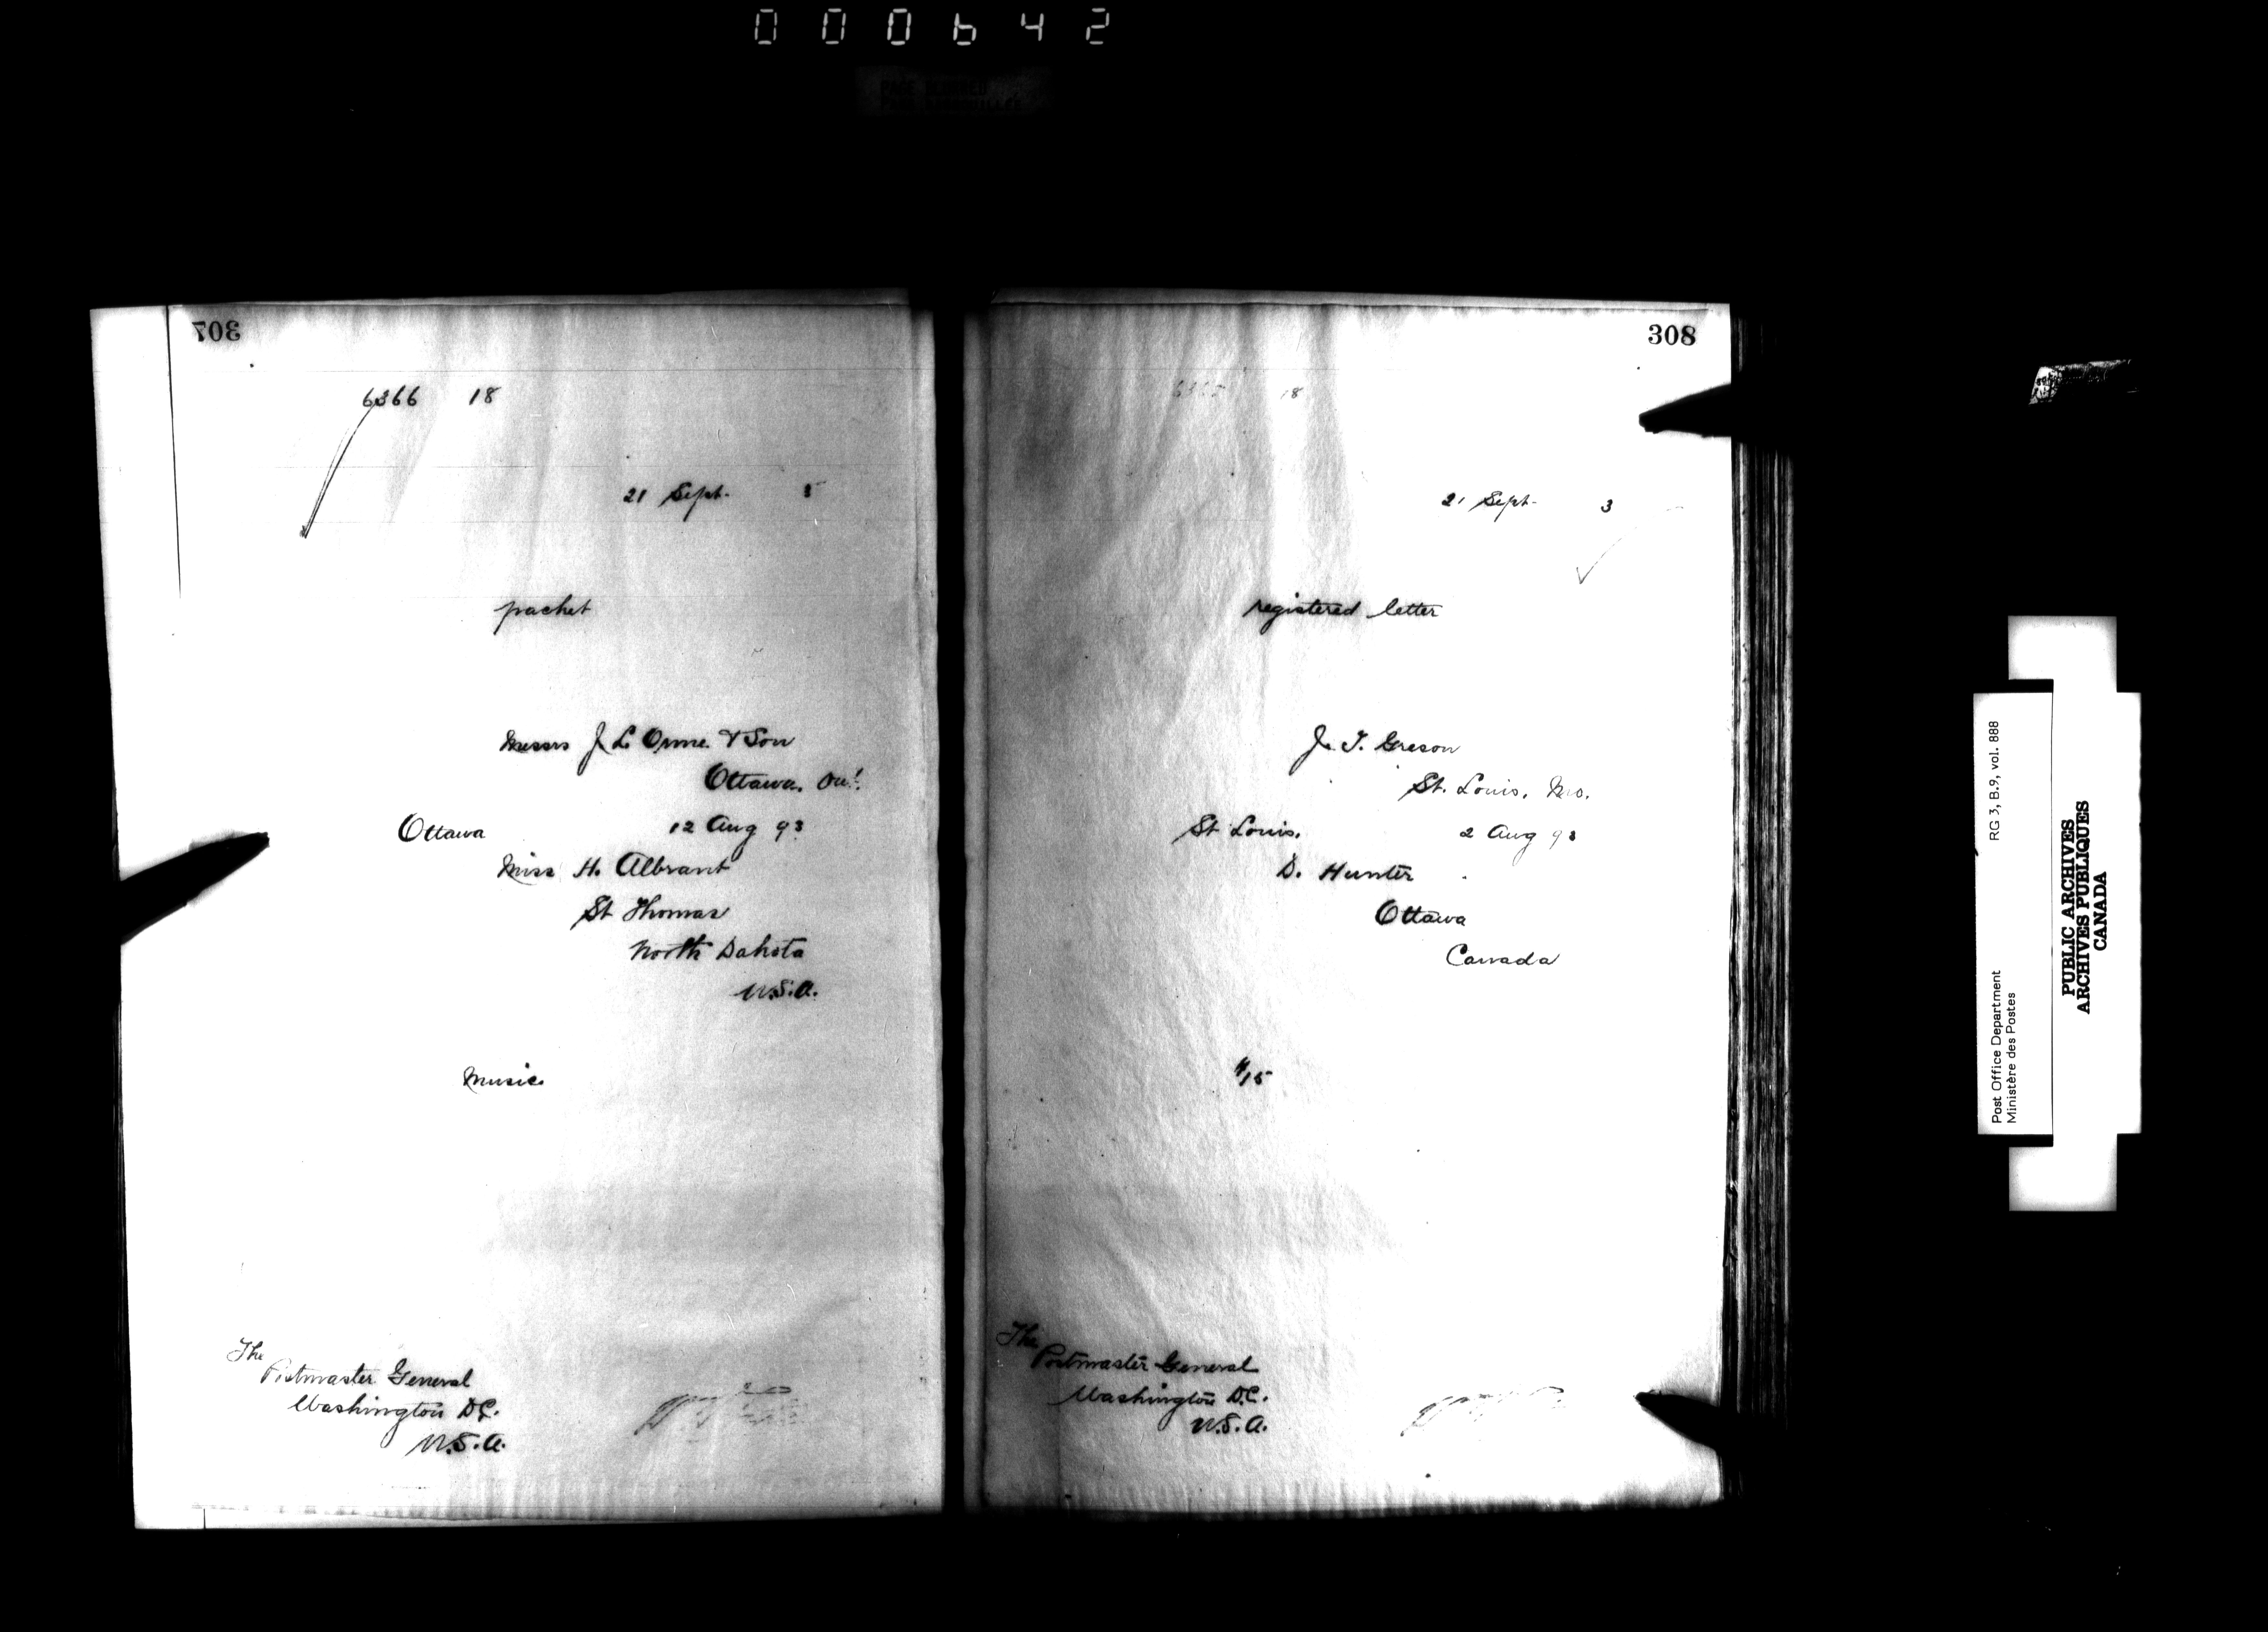 000642
307
6366 18
21 Sept. 3
packet
Messrs J. L. Orme & Son
Ottawa, Ont.
Ottawa 12 Aug 93
Miss H. Albrant
St Thomas
North Dakota
U.S.A.
Music
The
Postmaster General
Washington D.C.
U.S.A.
308
18
21 Sept. 3
registered letter
J. T. Greson
St. Louis, Mo.
St Louis, 2 Aug 93
D. Hunter
Ottawa
Canada
$15
The
Postmaster General
Washington D.C.
U.S.A.
Post Office Department RG 3, B.9, vol. 888
Ministère des Postes
PUBLIC ARCHIVES
ARCHIVES PUBLIQUES
CANADA